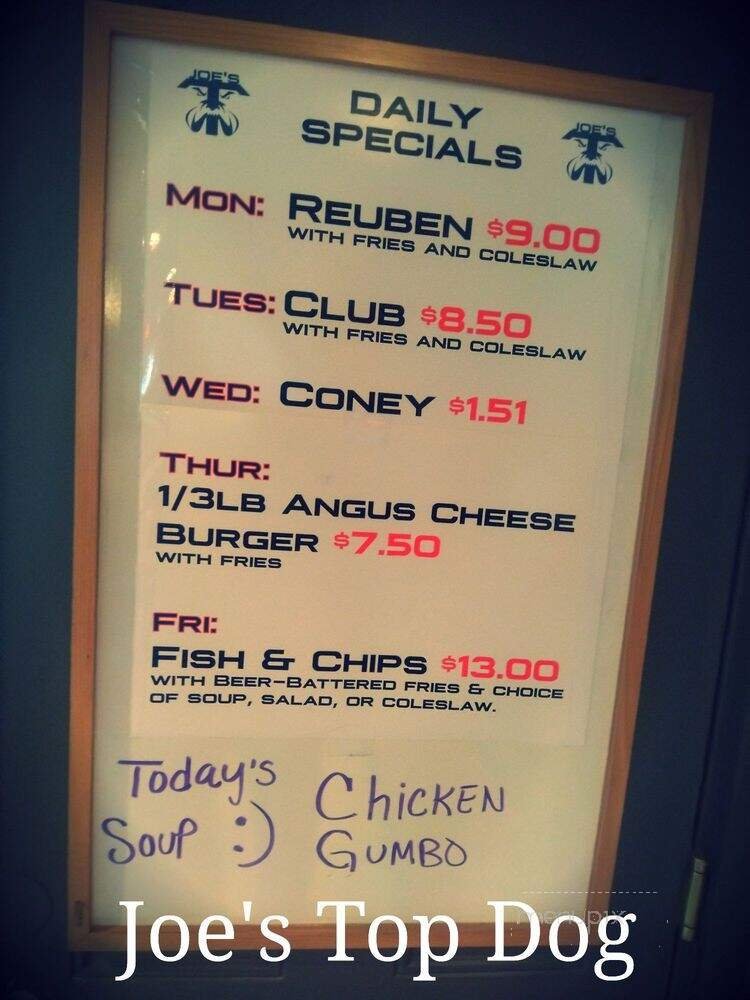 JOE'S
JOE'S
DAILY
SPECIALS
MON: REUBEN $9.00
WITH FRIES AND COLESLAW
TUES: CLUB $8.50
WITH FRIES AND COLESLAW
WED: CONEY $1.51
THUR:
1/3LB ANGUS CHEESE
BURGER $7.50
WITH FRIES
FRI:
FISH & CHIPS $13.00
WITH BEER-BATTERED FRIES & CHOICE
OF SOUP, SALAD, OR COLESLAW.
Today's
Soup :)
CHICKEN
GUMBO
Joe's Top Dog